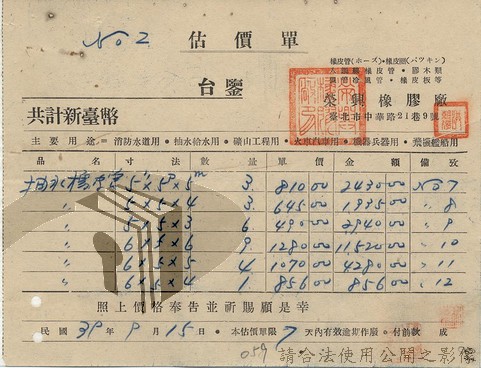 No 2
估價單
橡皮管(ホース)・橡皮圈(パツキン)
台鑒
榮興橡膠廠
臺北市中華路21巷9號
共計新臺幣
主要用途=消防水道用・抽水給水用・礦山工程用・火車汽車用・機器兵器用・飛機艦船用
品名 寸法 數量 單價 金額 備攷
5" x 5P x 5m 3. 810 00 2430 00 No 7
〃 5 x 5 x 4 3. 645 00 1935 00 〃 8
〃 5 x 5 x 3 6. 490 00 2940 00 〃 9
〃 6 x 5 x 6 9. 1280 00 11,520 00 〃 10
〃 6 x 5 x 5 4. 1070 00 4280 00 〃 11
〃 6 x 5 x 4 1. 856 00 856 00 〃 12
照上價格奉告並祈賜顧是幸
民國39年9月15日・本估價單限7天內有效逾期作廢・付前款 成
059
請合法使用公開之影像